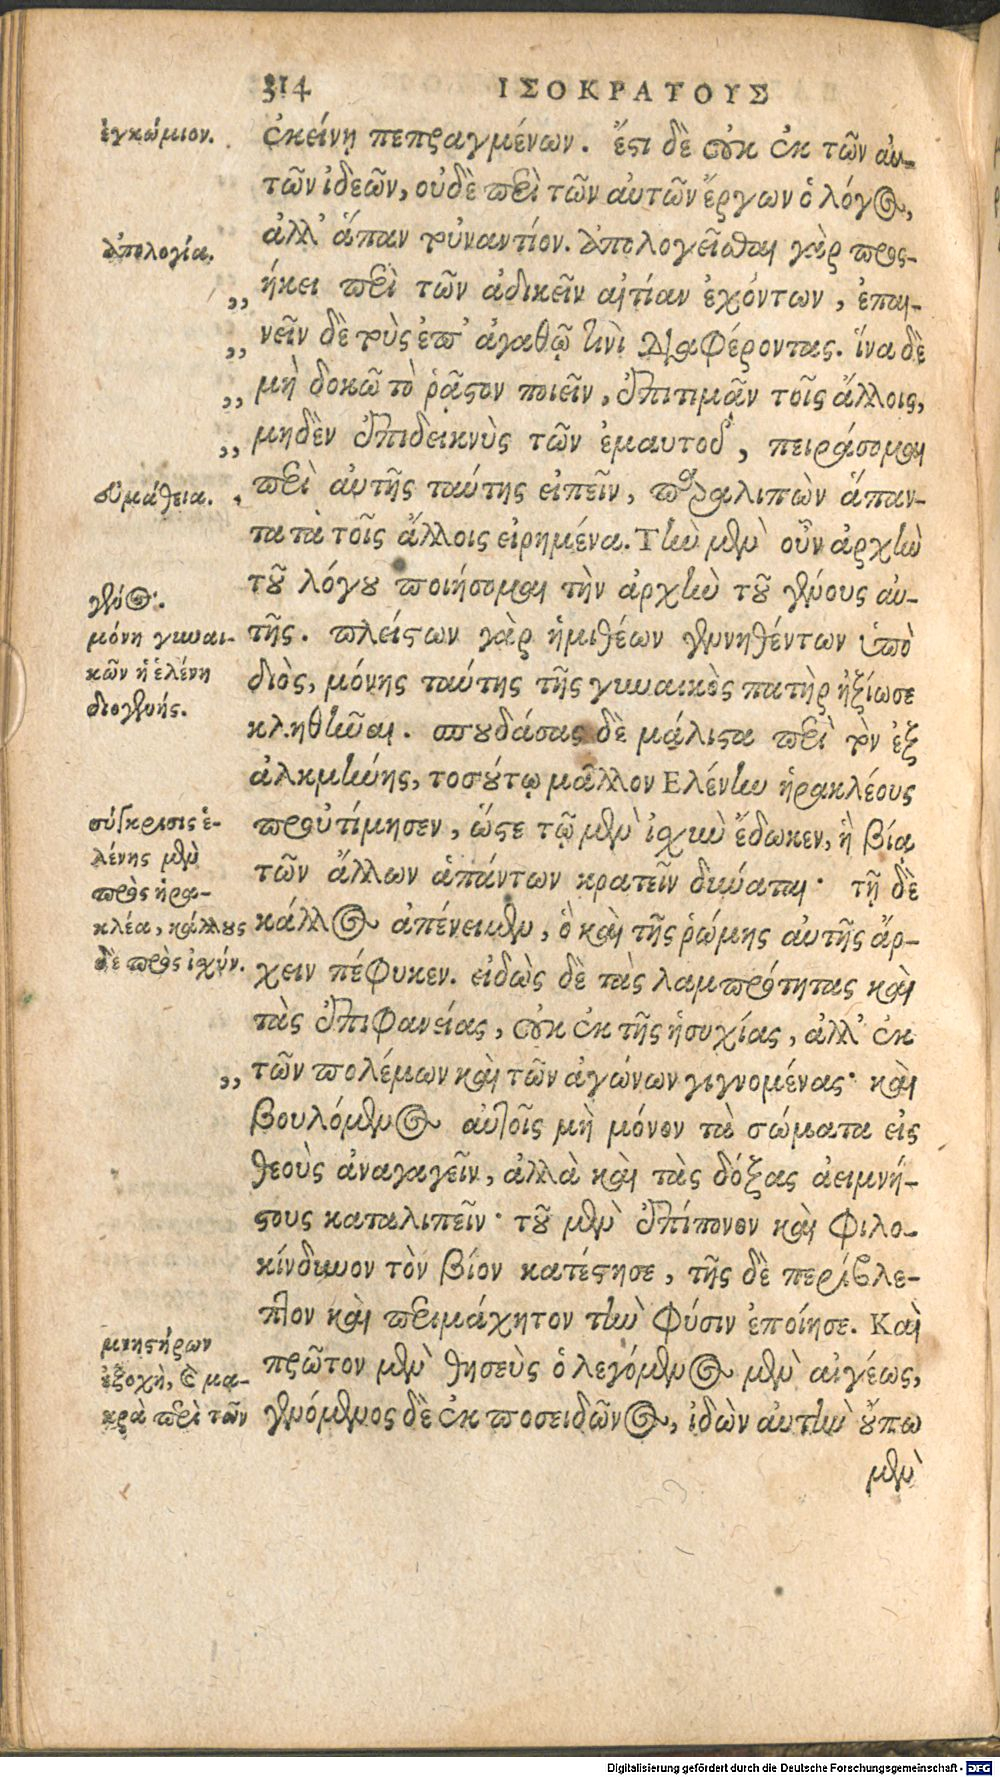 314 ΙΣΟΚΡΑΤΟΥΣ
ἐγκώμιον.
ἐκείνῃ πεπραγμένων. ἔστι δὲ οὐκ ἐκ τῶν αὐ-
τῶν ἰδεῶν, οὐδὲ περὶ τῶν αὐτῶν ἔργων ὁ λόγος,
ἀλλ' ἅπαν τοὐναντίον. ἀπολογεῖσθαι γὰρ προσ-
ἀπολογία.
,, ήκει περὶ τῶν ἀδικεῖν αἰτίαν ἐχόντων, ἐπαι-
,, νεῖν δὲ τοὺς ἐπ' ἀγαθῷ τινὶ διαφέροντας. ἵνα δὲ
,, μὴ δοκῶ τὸ ῥᾷστον ποιεῖν, ἐπιτιμᾶν τοῖς ἄλλοις,
,, μηδὲν ἐπιδεικνὺς τῶν ἐμαυτοῦ, πειράσομαι
εὐμάθεια.
, περὶ αὐτῆς ταύτης εἰπεῖν, παραλιπὼν ἅπαν-
τα τὰ τοῖς ἄλλοις εἰρημένα. Τὴν μὲν οὖν ἀρχὴν
τοῦ λόγου ποιήσομαι τὴν ἀρχὴν τοῦ γένους αὐ-
γένος.
μόνη γυναι-
κῶν ἡ ἑλένη
διογενής.
τῆς. πλείστων γὰρ ἡμιθέων γεννηθέντων ὑπὸ
διὸς, μόνης ταύτης τῆς γυναικὸς πατὴρ ἠξίωσε
κληθῆναι. σπουδάσας δὲ μάλιστα περὶ τὸν ἐξ
ἀλκμήνης, τοσούτῳ μᾶλλον Ελένην ἡρακλέους
σύγκρισις ἑ-
λένης μὲν
πρὸς ἡρα-
κλέα, κάλλους
δὲ πρὸς ἰσχύν.
προὐτίμησεν, ὥστε τῷ μὲν ἰσχὺν ἔδωκεν, ἣ βίᾳ
τῶν ἄλλων ἁπάντων κρατεῖν δύναται· τῇ δὲ
κάλλος ἀπένειμεν, ὃ καὶ τῆς ῥώμης αὐτῆς ἄρ-
χειν πέφυκεν. εἰδὼς δὲ τὰς λαμπρότητας καὶ
τὰς ἐπιφανείας, οὐκ ἐκ τῆς ἡσυχίας, ἀλλ' ἐκ
,, τῶν πολέμων καὶ τῶν ἀγώνων γιγνομένας· καὶ
βουλόμενος αὐτοῖς μὴ μόνον τὰ σώματα εἰς
θεοὺς ἀναγαγεῖν, ἀλλὰ καὶ τὰς δόξας ἀειμνή-
στους καταλιπεῖν· τοῦ μὲν ἐπίπονον καὶ φιλο-
κίνδυνον τὸν βίον κατέστησε, τῆς δὲ περίβλε-
πτον καὶ περιμάχητον τὴν φύσιν ἐποίησε. Καὶ
μνηστήρων
ἐξοχὴ, καὶ μα-
κρὰ περὶ τῶν
πρῶτον μὲν θησεὺς ὁ λεγόμενος μὲν αἰγέως,
γενόμενος δὲ ἐκ ποσειδῶνος, ἰδὼν αὐτὴν οὔπω
μὲν
Digitalisierung gefördert durch die Deutsche Forschungsgemeinschaft - DFG